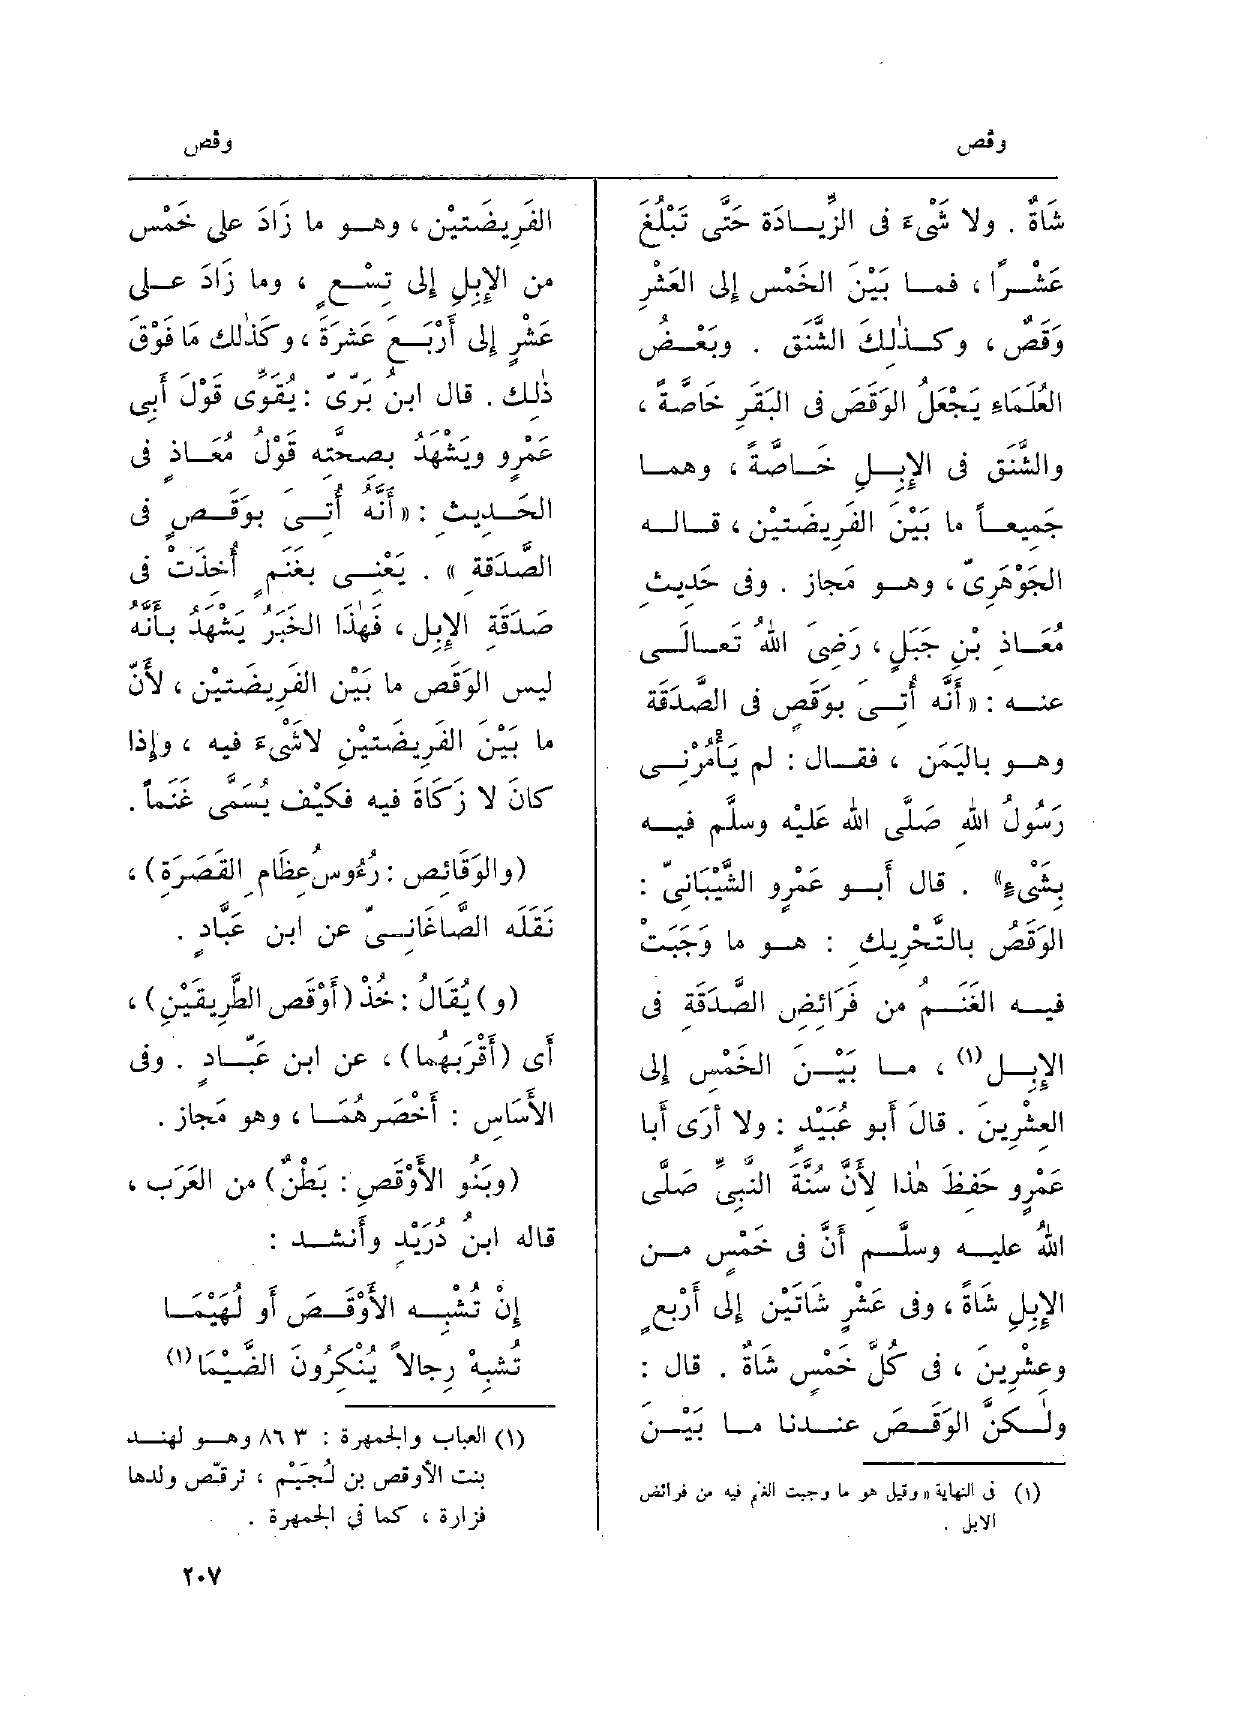 وقص
وقص
شَاةٌ . ولا شَىْءَ فى الزِّيــادَة حَتَّى تَبْلُغَ
عَشْــرًا ، فمــا بَيْنَ الخَمْسِ إلى العَشْرِ
وَقَصٌ ، وكــذٰلِكَ الشَّنَق . وبَعْــضُ
العُلَمَاءِ يَجْعَلُ الوَقَصَ فى البَقَرِ خاصَّةً ،
والشَّنَق فى الإِبِــلِ خَــاصَّةً ، وهمــا
جَمِيعــاً ما بَيْنَ الفَرِيضَتَيْنِ ، قــالــه
الجَوْهَرِىّ ، وهــو مَجاز . وفى حَدِيثِ
مُعَــاذِ بْنِ جَبَلٍ ، رَضِىَ اللهُ تعــالَــى
عنــه : « أَنَّه أُتِــىَ بوَقَصٍ فى الصَّدَقَة
وهــو باليَمَن ، فقــال : لم يَأْمُرْنِــى
رَسُولُ اللهِ صَلَّى اللهُ عَلَيْه وسلَّم فيــه
بِشَىْءٍ » . قال أَبــو عَمْرٍو الشَّيْبَانِىّ :
الوَقَصُ بالتَّحْرِيك : هــو ما وَجَبَتْ
فيــه الغَنَــم من فَرَائضِ الصَّدَقَة فى
الإِبِــل (١) ، مــا بَيْــنَ الخَمْسِ إلى
العِشْرِينَ . قالَ أَبو عُبَيْدٍ : ولا أَرَى أَبا
عَمْرٍو حَفِظَ هٰذا لأَنَّ سُنَّةَ النَّبِىِّ صَلَّى
اللهُ عليــه وسلَّــم أَنَّ فى خَمْسٍ مــن
الإِبِلِ شَاةً ، وفى عَشْرٍ شَاتَيْنِ إلى أَرْبعٍ
وعشْرِينَ ، فى كُلِّ خَمْسٍ شَاةٌ . قال :
ولٰــكنَّ الوَقَــصَ عنــدنا مــا بَيْــنَ
(١) فى النهاية « وقيل هو ما وجبت الغنم فيه من فرائض
الابل .
الفَرِيضَتَيْنِ ، وهــو ما زَادَ على خَمْسٍ
من الإِبِلِ إلى تِسْــعٍ ، وما زَادَ عــلى
عَشْرٍ إلى أَرْبَــعَ عَشْرَةَ ، وكَذٰلك مَا فَوْقَ
ذٰلك . قال ابنُ بَرِّىّ : يُقَوِّى قَوْلَ أَبى
عَمْرٍو ويَشْهَدُ بصحَّته قَوْلُ مُعَــاذٍ فى
الحَــدِيث : « أَنَّهُ أُتِــىَ بوَقَــصٍ فى
الصَّدَقَة » . يَعْنِــى بغَنَمٍ أُخِذَتْ فى
صَدَقَةِ الإِبِل ، فَهٰذَا الخَبَرُ يَشْهَدُ بأَنَّهُ
ليس الوَقَص ما بَيْن الفَرِيضَتَيْن ، لأَنّ
ما بَيْنَ الفَرِيضَتَيْنِ لاشَىْءَ فيه ، وإِذا
كانَ لا زَكَاةَ فيه فكَيْفَ يُسَمَّى غَنَماً .
(والوَقَائص : رُءُوسُ عِظَامِ القَصَرَةِ) ،
نَقَلَه الصّاغَانِــىّ عن ابن عَبَّادٍ .
(و) يُقَالُ : خُذْ (أَوْقَصَ الطَّرِيقَيْنِ) ،
أَى (أَقْرَبَهُما) ، عن ابن عَبّــادٍ . وفى
الأَسَاسِ : أَخْصَرَهُمَــا ، وهو مَجاز .
(وبَنُو الأَوْقَصِ : بَطْنٌ) من العَرَب ،
قاله ابنُ دُرَيْدٍ وأَنشــد :
إِنْ تُشْبِــه الأَوْقَــصَ أَو لُهَيْمَــا
تُشْبِهْ رِجالاً يُنْكِرُونَ الضَّيْمَا (١)
(١) العباب والجمهرة : ٨٦٣ وهــو لهنــد
بنت الأوقص بن لُجَيْم ، ترقّص ولدها
فزارة ، كما في الجمهرة .
٢٠٧